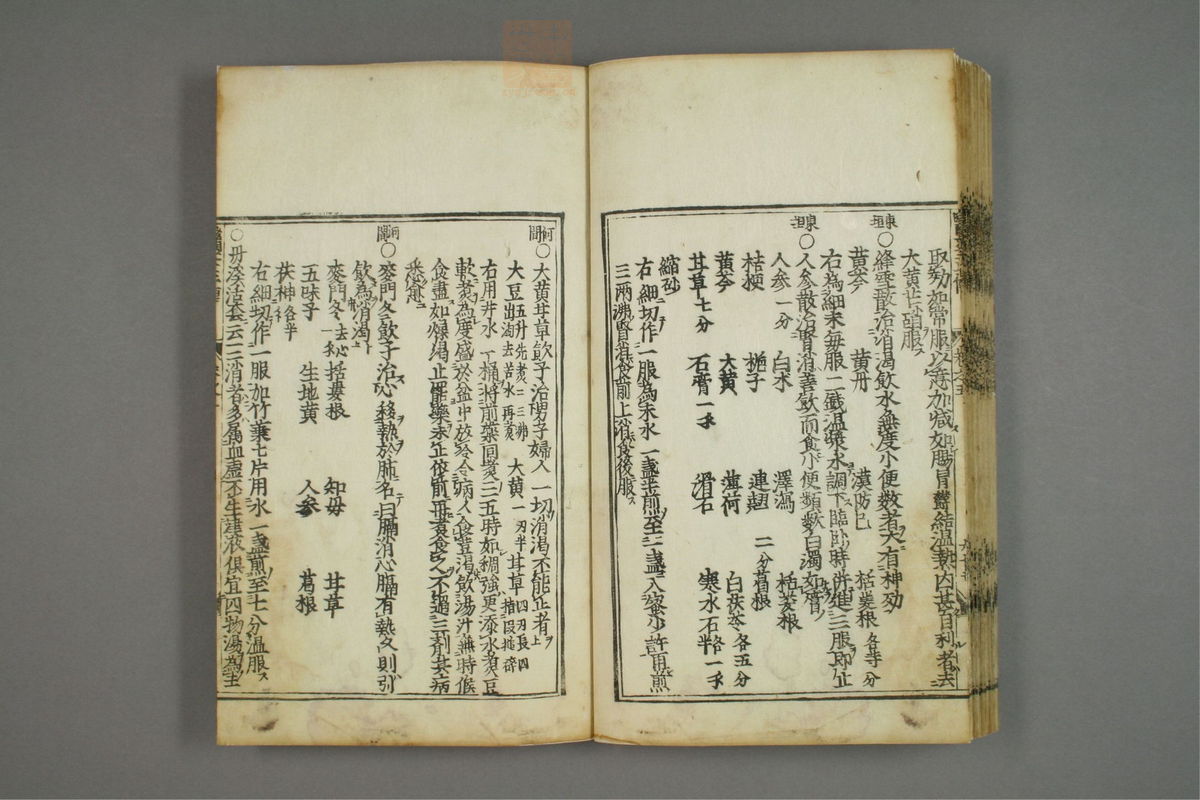 取効如常服以意加減如腸胃鬱結溫熱内甚自利者去
大黄芒硝服
東垣○絳雪散治消渴飲水無度小便數者大有神効
黄芩 黄丹 漢防已 括蔞根各等分
右為細末毎服二錢溫漿水調下臨卧時并進三服即止
東垣○人参散治腎消善飲而食小便頻數白濁如膏
人参一分 白朮 澤瀉 栝蔞根
桔梗 梔子 連翹二分 葛根
黄芩 大黄 薄荷 白茯苓各五分
甘草七分 石膏一刄 滑石 寒水石各一刄半
縮砂
右細切作一服為末水一盞半煎至一盞入蜜少許再煎
三兩沸腎消食前上消食後服
河間○大黄甘草飲子治男子婦人一切消渴不能止者
大豆五升先煮二三沸出淘去苦水再煮 大黄一刄半 甘草四刄長四指段搥碎
右用井水一桶將前藥同煮三五時如稠強更添水煮豆
軟爲度盛於盆中放冷令病人食荳渴飲湯汁無時候
食盡如燥渴止罷藥未止依前再煮食之不過三劑其病
悉愈
河間○麥門冬飲子治心移熱於肺名曰膈消心膈有熱久則引
飲為消渴
麥門冬去心一刄 括蔞根 知母 甘草
五味子 生地黄 人参 葛根
茯神各半刄
右細切作一服加竹葉七片用水一盞煎至七分溫服
○丹溪活套云三消者多属血虚不生津液俱宜四物湯為主